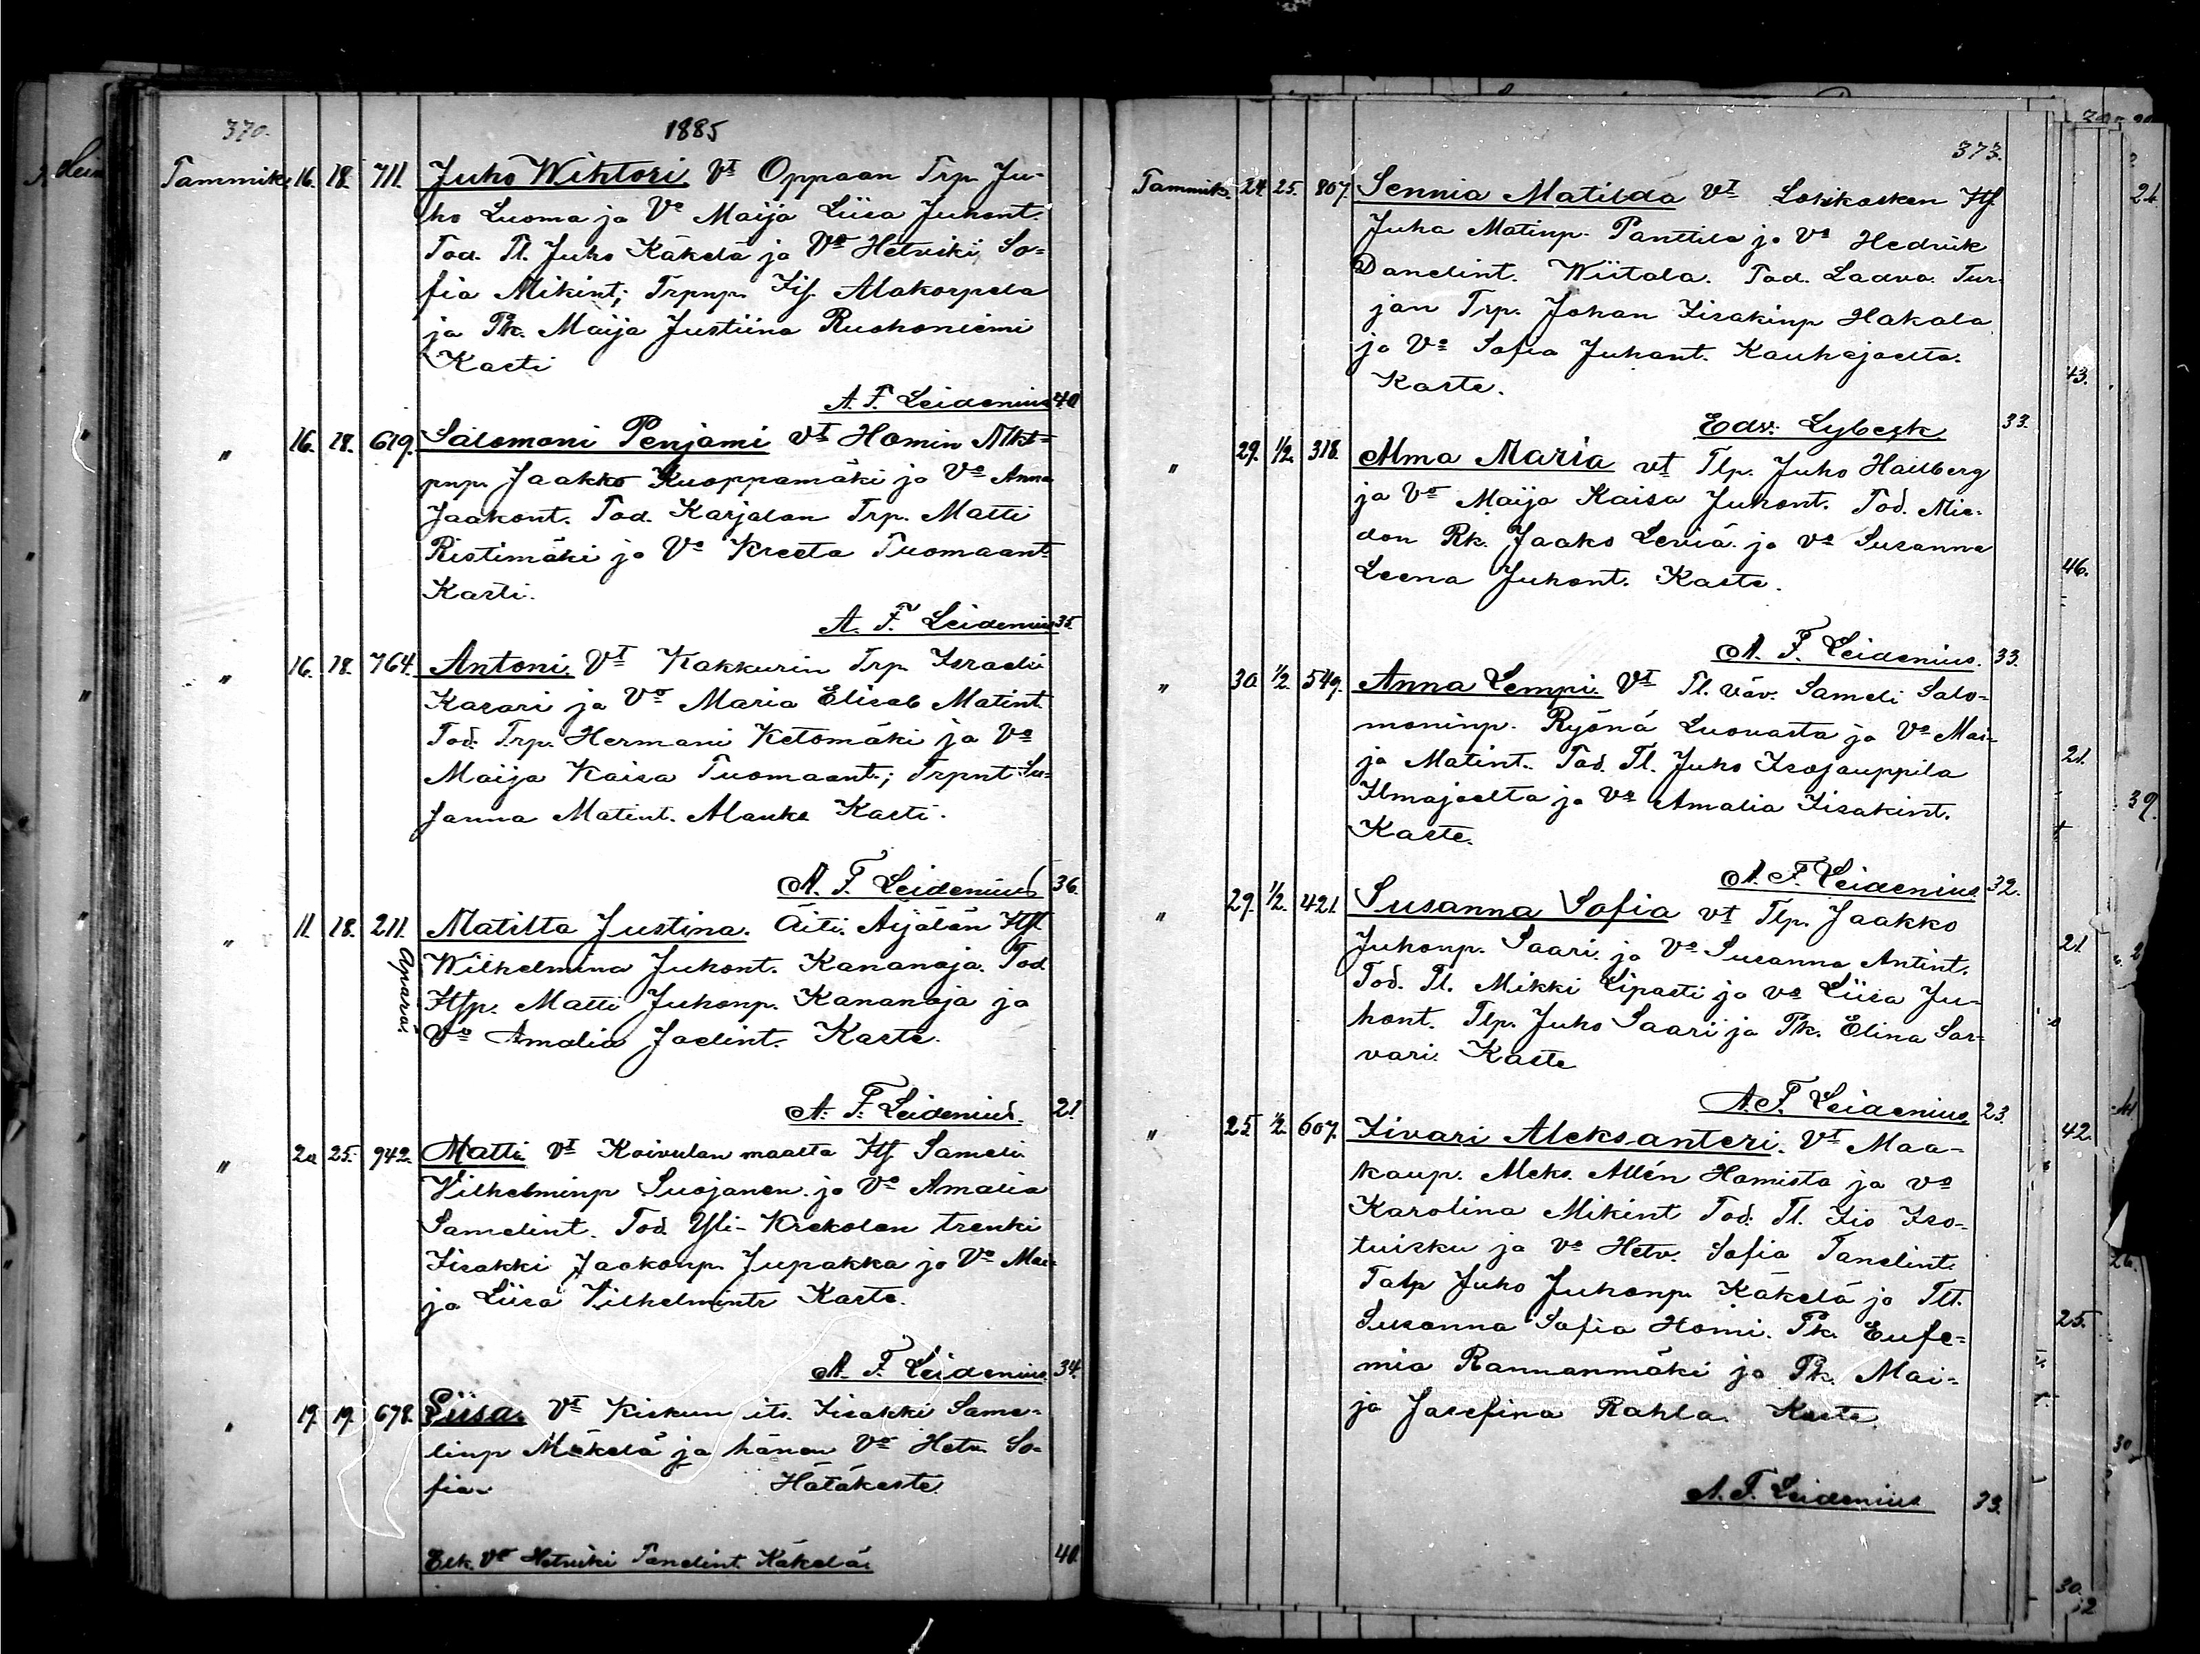 370.
1885
Tammik. 16. 18. 711. Juho Wihtori Vt Oppaan Trp. Ju-
ho Luoma ja Vo Maija Liisa Juhont.
Tod. Tl. Juho Käkelä ja Vo Hetviki So-
fia Mikint; Trpnp. Iis. Alakorpela
ja Pk. Maija Justiina Ruohoniemi
Kasti
A. F. Leidenius 40
" 16. 18. 619. Salomoni Penjami Vt Homin Mkt-
pnp. Jaakko Kuoppamäki ja Vo Anna
Jaakont. Tod. Karjalan Trp. Matti
Ristimäki ja Vo Kreeta Tuomaant.
Kasti.
A. F. Leidenius 35
" 16. 18. 764. Antoni. Vt Kakkurin Trp. Israeli
Kasari ja Vo Maria Elisab Matint.
Tod. Trp. Hermani Ketomäki ja Vo
Maija Kaisa Tuomaant; Trpnt Su-
sanna Matint. Alanko Kasti.
A. F. Leidenius 36.
" 11. 18. 211. Matilta Justina. Äiti. Äijälän Itst
Äpäriä
Wilhelmina Juhont. Kananoja. Tod
Itsp. Matti Juhonp. Kananoja ja
Vo Amalia Joelint. Kaste.
A. F. Leidenius. 21
" 20. 25. 942. Matti Vt Koivulan maalta Its. Sameli
Vilhelminp Suojanen ja Vo Amalia
Samelint. Tod. Yli-Krekolan trenki
Iisakki Jaakonp. Jupakka ja Vo Mai-
ja Liisa Vilhelmintr Kaste.
A. F. Leidenius 34.
" 19. 19. 678. Liisa. Vt Kiskun its. Iisakki Same-
linp Mäkelä ja hänen Vo Hetv. So-
fia. Hätäkaste
Esk. Vo Hetviki Tanelint. Käkelä. 40.
373.
Tammik. 24. 25. 807. Sennia Matilda Vt Loskkosken Its.
Juha Matinp. Panttila ja Vo Hedvik
Danelint. Wiitala. Tod. Ladva. Tur-
jan Trp. Johan Iisakinp Hakala
ja Vo Sofia Juhant. Kauhajoelta.
Kaste.
Edv. Lybeck 33.
" 29. 1/2. 318. Alma Maria vt Tlp. Juho Hallberg
ja Vo Maija Kaisa Juhont. Tod. Mie-
don Rk. Jaako Leviä. ja vo Susanna
Leena Juhont. Kaste.
A. F. Leidenius. 33.
" 30. 1/2. 549. Anna Lempi Vt Tl. väv. Sameli Salo-
moninp. Ryönä Luovasta ja Vo Mai-
ja Matint. Tod. Tl. Juho Isojauppila
Ilmajoelta ja Vo Amalia Iisakint.
Kaste.
A. F. Leidenius 32.
" 29. 1/2. 421. Susanna Sofia vt Tlp. Jaakko
Juhonp. Saari. ja Vo Susanna Antint.
Tod. Tl. Mikki Lipasti ja vo Liisa Ju-
hont. Tlp. Juho Saari ja Pk. Elina Sar-
vari. Kaste
A. F. Leidenius. 23
" 25. 1/2. 607. Iivari Aleksanteri. Vt Maa-
kaup. Aleks. Allén Homista ja vo
Karolina Mikint Tod. Tl. Iio Iso-
tuisku ja Vo Hetv. Sofia Tanelint.
Talp Juho Juhonp. Käkelä ja Tlt.
Susanna Sofia Homi. Pk. Eufe-
mia Rannanmäki ja Pk. Mai-
ja Josefina Rahla. Kaste.
A. F. Leidenius 33.
24.
43.
46.
21.
39.
21.
42.
26.
25.
30
30.